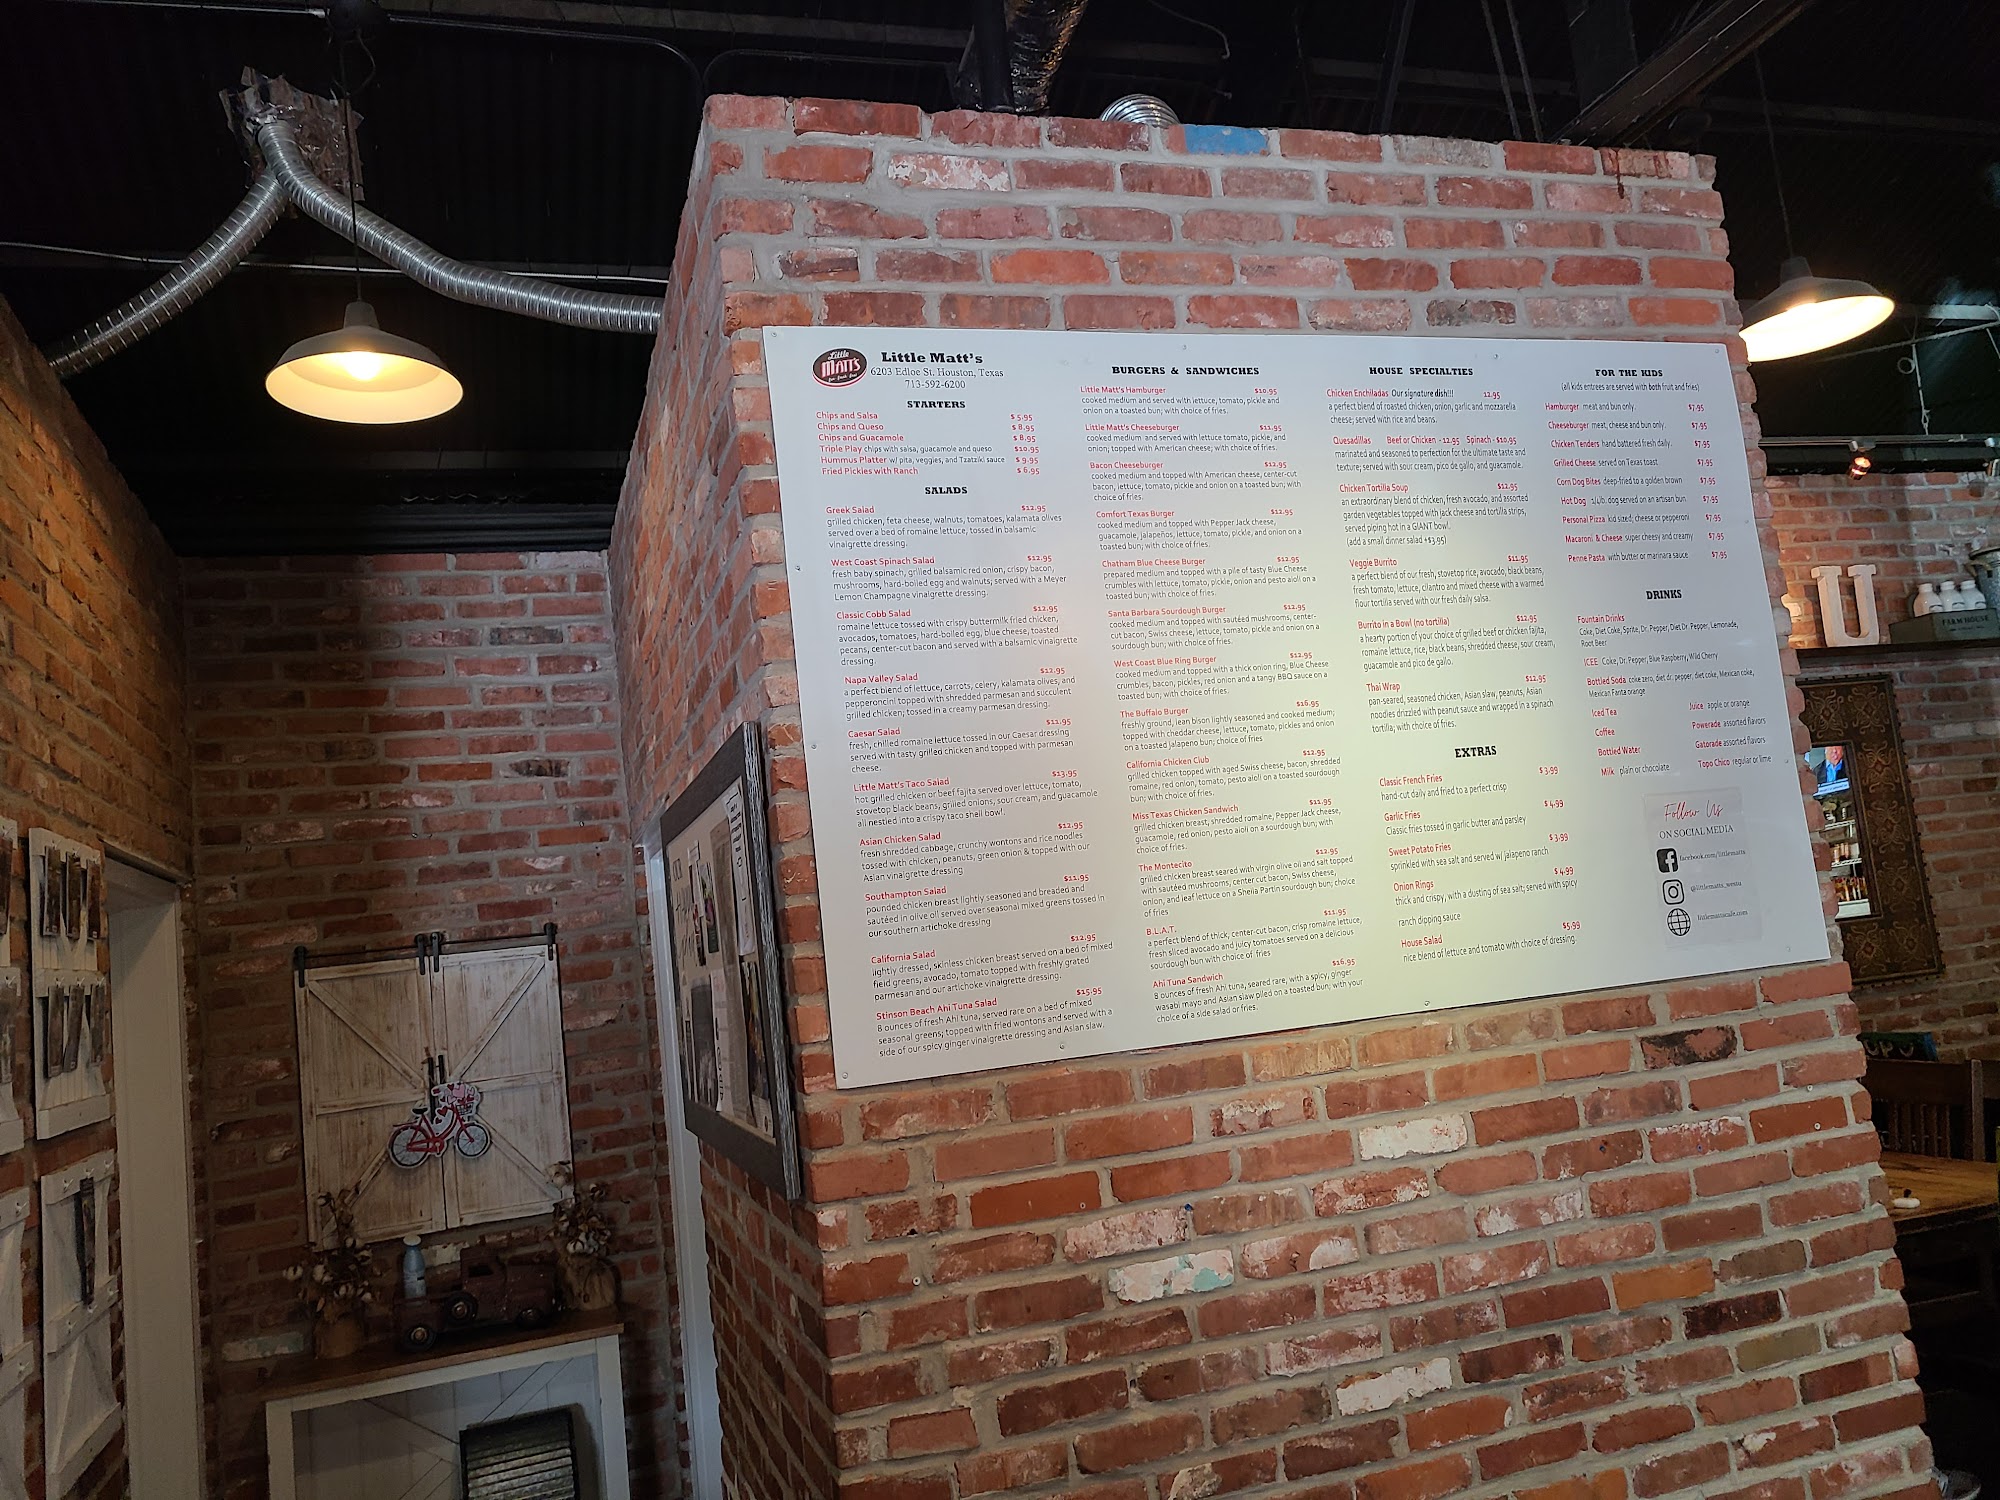 Little
MATT'S
Little Matt's
6203 Edloe St. Houston, Texas
713-592-6200
STARTERS
Chips and Salsa $ 5.95
Chips and Queso $ 8.95
Chips and Guacamole $ 8.95
Triple Play chips with salsa, guacamole and queso $10.95
Hummus Platter w/ pita, veggies, and Tzatziki sauce $ 9.95
Fried Pickles with Ranch $ 6.95
SALADS
Greek Salad $12.95
grilled chicken, feta cheese, walnuts, tomatoes, kalamata olives
served over a bed of romaine lettuce, tossed in balsamic
vinaigrette dressing.
West Coast Spinach Salad $12.95
fresh baby spinach, grilled balsamic red onion, crispy bacon,
mushrooms, hard-boiled egg and walnuts; served with a Meyer
Lemon Champagne vinaigrette dressing.
Classic Cobb Salad $12.95
romaine lettuce tossed with crispy buttermilk fried chicken,
avocados, tomatoes, hard-boiled egg, blue cheese, toasted
pecans, center-cut bacon and served with a balsamic vinaigrette
dressing.
Napa Valley Salad $12.95
a perfect blend of lettuce, carrots, celery, kalamata olives, and
pepperoncini topped with shredded parmesan and succulent
grilled chicken; tossed in a creamy parmesan dressing.
Caesar Salad $11.95
fresh, chilled romaine lettuce tossed in our Caesar dressing
served with tasty grilled chicken and topped with parmesan
cheese.
Little Matt's Taco Salad $13.95
hot grilled chicken or beef fajita served over lettuce, tomato,
stovetop black beans, grilled onions, sour cream, and guacamole
all nestled into a crispy taco shell bowl.
Asian Chicken Salad $12.95
fresh shredded cabbage, crunchy wontons and rice noodles
tossed with chicken, peanuts, green onion & topped with our
Asian vinaigrette dressing
Southampton Salad $11.95
pounded chicken breast lightly seasoned and breaded and
sautéed in olive oil served over seasonal mixed greens tossed in
our southern artichoke dressing
California Salad $12.95
lightly dressed, skinless chicken breast served on a bed of mixed
field greens, avocado, tomato topped with freshly grated
parmesan and our artichoke vinaigrette dressing.
Stinson Beach Ahi Tuna Salad $15.95
8 ounces of fresh Ahi tuna, served rare on a bed of mixed
seasonal greens; topped with fried wontons and served with a
side of our spicy ginger vinaigrette dressing and Asian slaw.
BURGERS & SANDWICHES
Little Matt's Hamburger $10.95
cooked medium and served with lettuce, tomato, pickle and
onion on a toasted bun; with choice of fries.
Little Matt's Cheeseburger $11.95
cooked medium and served with lettuce tomato, pickle, and
onion; topped with American cheese; with choice of fries.
Bacon Cheeseburger $12.95
cooked medium and topped with American cheese, center-cut
bacon, lettuce, tomato, pickle and onion on a toasted bun; with
choice of fries.
Comfort Texas Burger $12.95
cooked medium and topped with Pepper Jack cheese,
guacamole, jalapeños, lettuce, tomato, pickle, and onion on a
toasted bun; with choice of fries.
Chatham Blue Cheese Burger $12.95
prepared medium and topped with a pile of tasty Blue Cheese
crumbles with lettuce, tomato, pickle, onion and pesto aioli on a
toasted bun; with choice of fries.
Santa Barbara Sourdough Burger $12.95
cooked medium and topped with sautéed mushrooms, center-
cut bacon, Swiss cheese, lettuce, tomato, pickle and onion on a
sourdough bun; with choice of fries.
West Coast Blue Ring Burger $12.95
cooked medium and topped with a thick onion ring, Blue Cheese
crumbles, bacon, pickles, red onion and a tangy BBQ sauce on a
toasted bun; with choice of fries.
The Buffalo Burger $16.95
freshly ground, lean bison lightly seasoned and cooked medium;
topped with cheddar cheese, lettuce, tomato, pickles and onion
on a toasted jalapeno bun; choice of fries
California Chicken Club $12.95
grilled chicken topped with aged Swiss cheese, bacon, shredded
romaine, red onion, tomato, pesto aioli on a toasted sourdough
bun; with choice of fries.
Miss Texas Chicken Sandwich $11.95
grilled chicken breast, shredded romaine, Pepper Jack cheese,
guacamole, red onion, pesto aioli on a sourdough bun; with
choice of fries.
The Montecito $12.95
grilled chicken breast seared with virgin olive oil and salt topped
with sautéed mushrooms, center cut bacon, Swiss cheese,
onion, and leaf lettuce on a Sheila Partin sourdough bun; choice
of fries
B.L.A.T. $11.95
a perfect blend of thick, center-cut bacon, crisp romaine lettuce,
fresh sliced avocado and juicy tomatoes served on a delicious
sourdough bun with choice of fries
Ahi Tuna Sandwich $16.95
8 ounces of fresh Ahi tuna, seared rare, with a spicy, ginger
wasabi mayo and Asian slaw piled on a toasted bun; with your
choice of a side salad or fries.
HOUSE SPECIALTIES
Chicken Enchiladas Our signature dish!!! 12.95
a perfect blend of roasted chicken, onion, garlic and mozzarella
cheese; served with rice and beans.
Quesadillas Beef or Chicken - 12.95 Spinach - $10.95
marinated and seasoned to perfection for the ultimate taste and
texture; served with sour cream, pico de gallo, and guacamole.
Chicken Tortilla Soup $12.95
an extraordinary blend of chicken, fresh avocado, and assorted
garden vegetables topped with jack cheese and tortilla strips,
served piping hot in a GIANT bowl.
(add a small dinner salad +$3.95)
Veggie Burrito $11.95
a perfect blend of our fresh, stovetop rice, avocado, black beans,
fresh tomato, lettuce, cilantro and mixed cheese with a warmed
flour tortilla served with our fresh daily salsa.
Burrito in a Bowl (no tortilla) $12.95
a hearty portion of your choice of grilled beef or chicken fajita,
romaine lettuce, rice, black beans, shredded cheese, sour cream,
guacamole and pico de gallo.
Thai Wrap $12.95
pan-seared, seasoned chicken, Asian slaw, peanuts, Asian
noodles drizzled with peanut sauce and wrapped in a spinach
tortilla; with choice of fries.
EXTRAS
Classic French Fries $ 3.99
hand-cut daily and fried to a perfect crisp
Garlic Fries $ 4.99
Classic fries tossed in garlic butter and parsley
Sweet Potato Fries $ 3.99
sprinkled with sea salt and served w/ jalapeno ranch
Onion Rings $ 4.99
thick and crispy, with a dusting of sea salt; served with spicy
ranch dipping sauce
House Salad $5.99
nice blend of lettuce and tomato with choice of dressing.
FOR THE KIDS
(all kids entrees are served with both fruit and fries)
Hamburger meat and bun only. $7.95
Cheeseburger meat, cheese and bun only. $7.95
Chicken Tenders hand battered fresh daily. $7.95
Grilled Cheese served on Texas toast. $7.95
Corn Dog Bites deep-fried to a golden brown $7.95
Hot Dog 1/4lb. dog served on an artisan bun. $7.95
Personal Pizza kid sized; cheese or pepperoni $7.95
Macaroni & Cheese super cheesy and creamy $7.95
Penne Pasta with butter or marinara sauce $7.95
DRINKS
Fountain Drinks
Coke, Diet Coke, Sprite, Dr. Pepper, Diet Dr. Pepper, Lemonade,
Root Beer
ICEE Coke, Dr. Pepper, Blue Raspberry, Wild Cherry
Bottled Soda coke zero, diet dr. pepper, diet coke, Mexican coke,
Mexican Fanta orange
Iced Tea Juice apple or orange
Coffee Powerade assorted flavors
Bottled Water Gatorade assorted flavors
Milk plain or chocolate Topo Chico regular or lime
Follow Us
ON SOCIAL MEDIA
facebook.com/littlematts
@littlematts_westu
littlemattscafe.com
U
FARM HOUSE